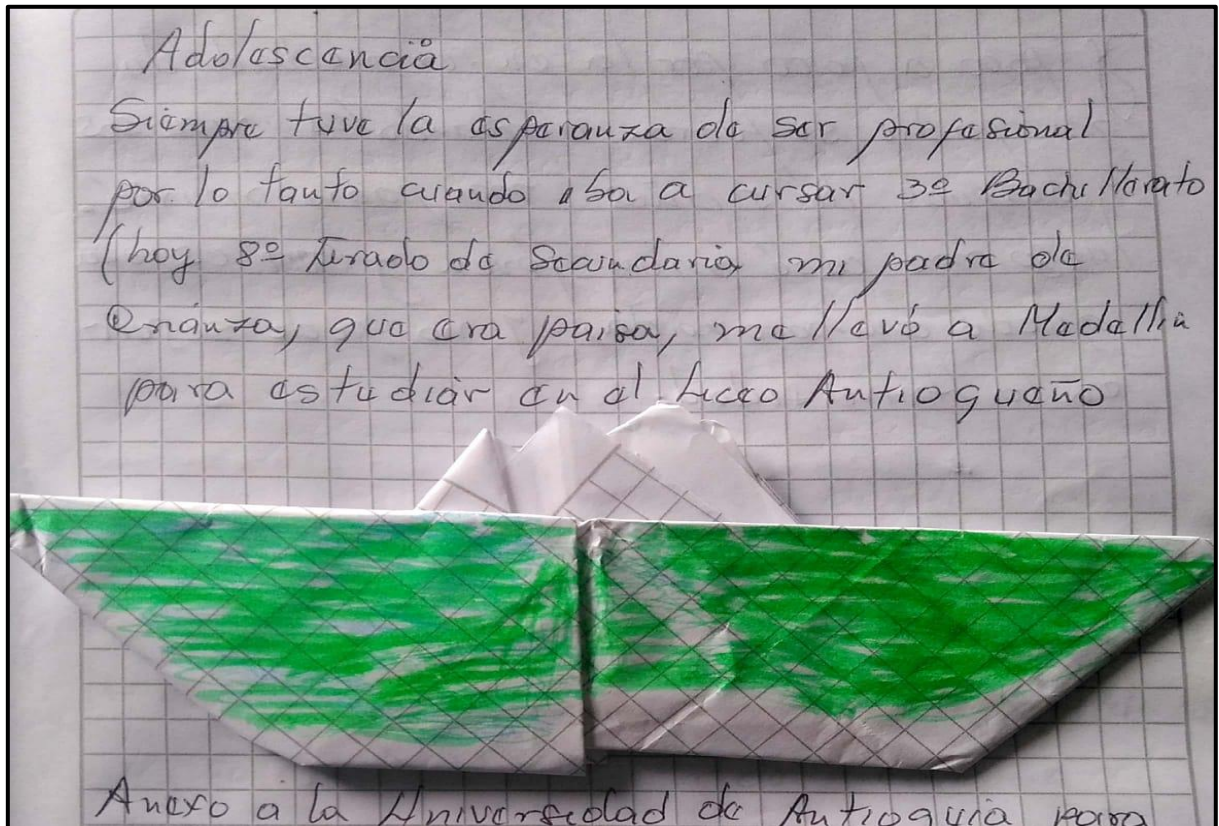 Adolescencia
Siempre tuve la esperanza de ser profesional
por lo tanto cuando iba a cursar 3º Bachillerato
(hoy 8º Grado de Secundaria, mi padre de
crianza, que era paisa, me llevó a Medellín
para estudiar en el Liceo Antioqueño
Anexo a la Universidad de Antioquia para